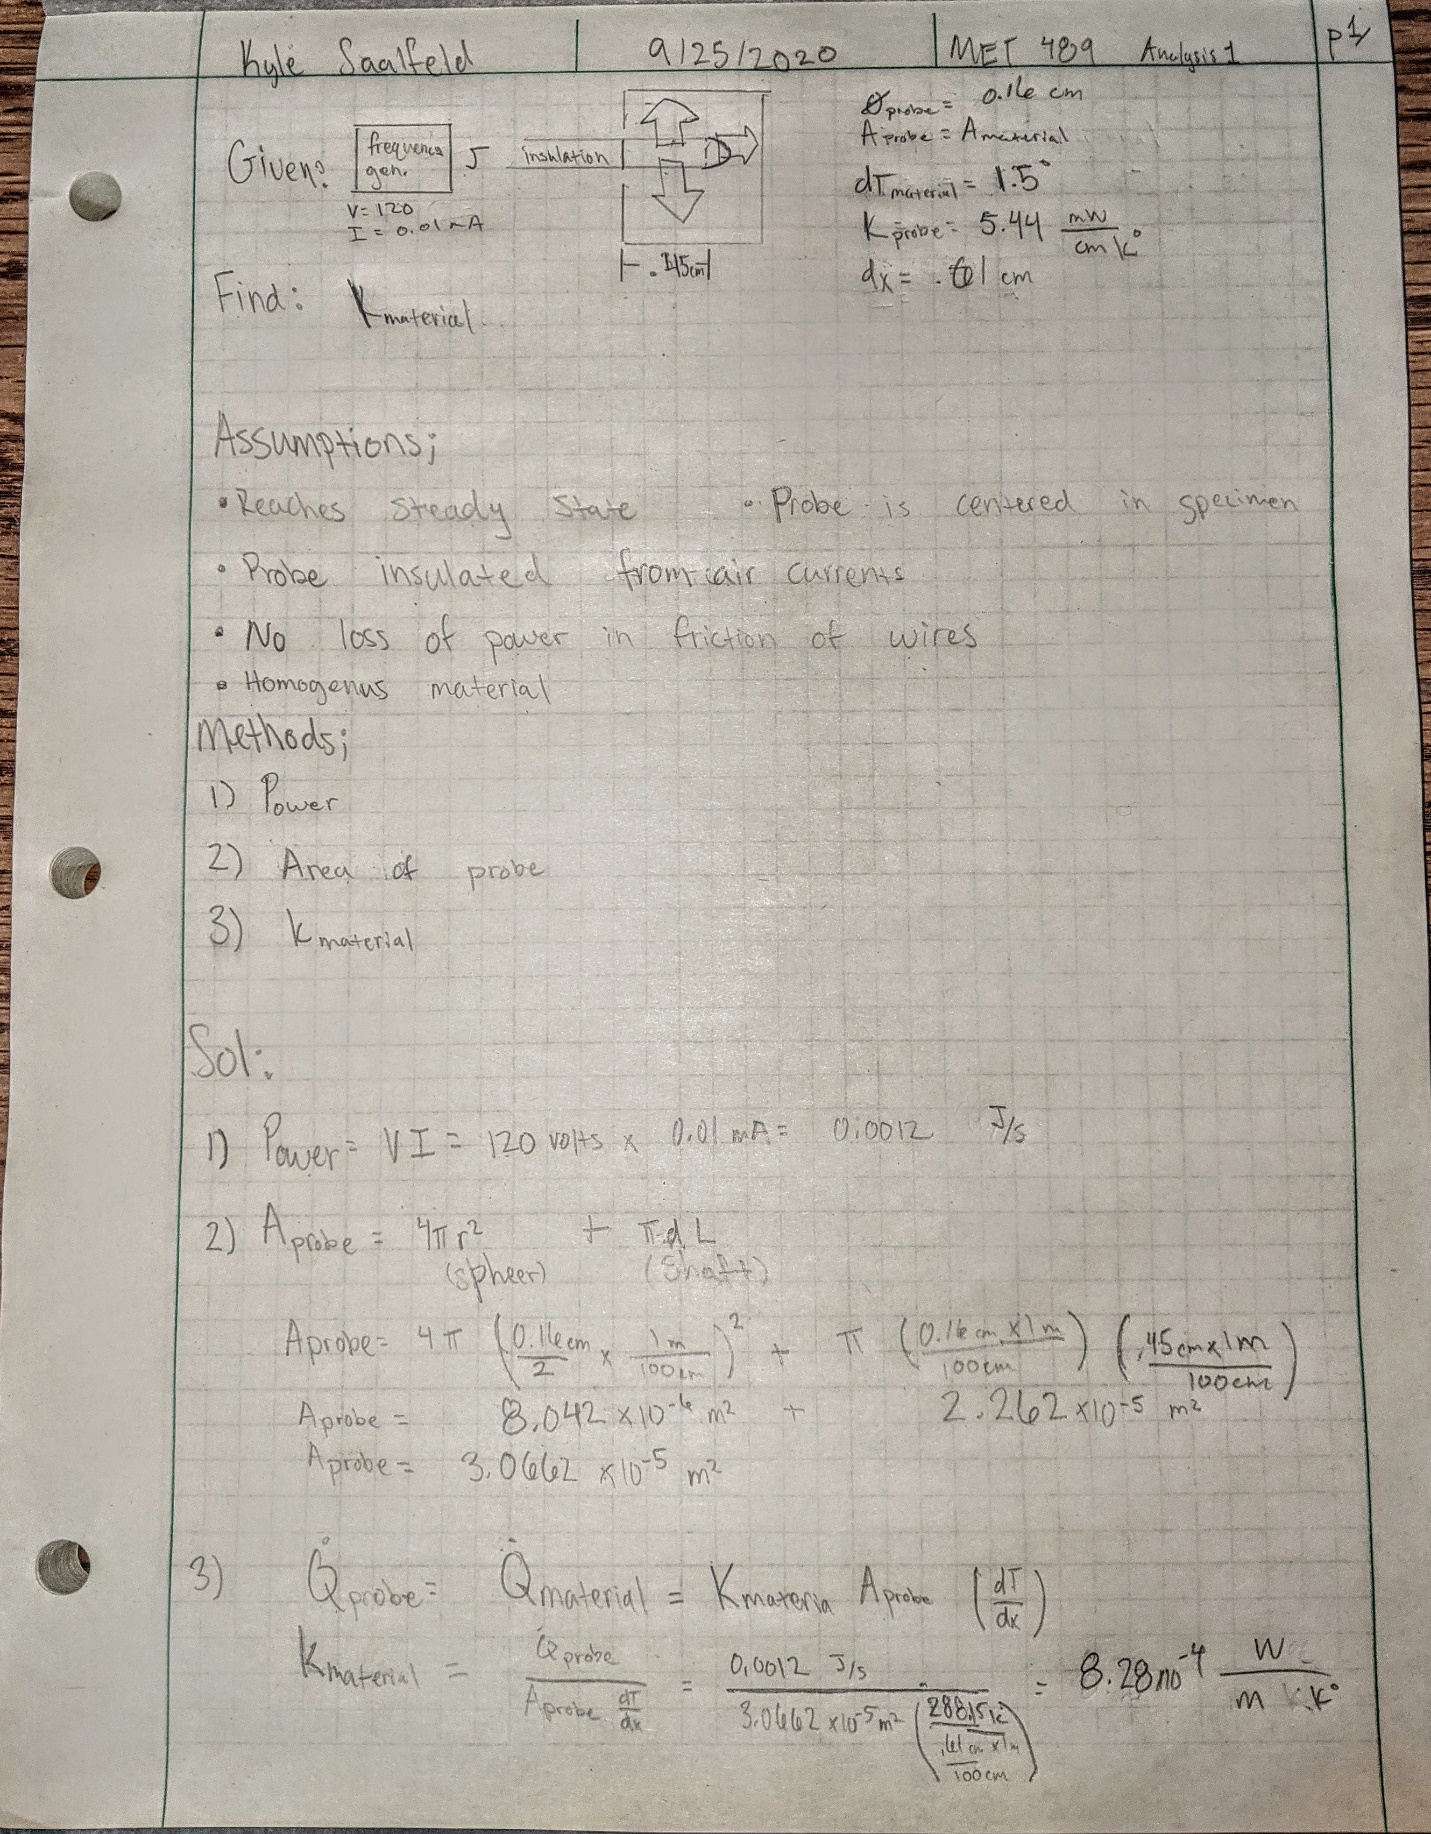 Kyle Saalfeld 9/25/2020 MET 489 Analysis 1 p1/
Given: frequency gen. J insulation
V= 120
I = 0.01 mA
.45cm
Øprobe= 0.16 cm
Aprobe = Amaterial
dTmaterial = 1.5°
Kprobe= 5.44 mW/cm K°
dx = .61 cm
Find: Kmaterial
Assumptions;
• Reaches steady state • Probe is centered in specimen
• Probe insulated from air currents
• No loss of power in friction of wires
• Homogenus material
Methods;
1) Power
2) Area of probe
3) Kmaterial
Sol:
1) Power = VI = 120 volts x 0.01 mA = 0.0012 J/s
2) Aprobe = 4πr² + πdL
(spheer) (shaft)
Aprobe= 4π (0.16cm/2 x 1m/100cm)² + π (0.16cm x 1m/100cm) (.45cm x 1m/100cm)
Aprobe = 8.042 x10⁻⁶ m² + 2.262 x10⁻⁵ m²
Aprobe = 3.0662 x10⁻⁵ m²
3) Q̇probe= Q̇material = Kmateria Aprobe (dT/dx)
Kmaterial = Q̇probe/Aprobe dT/dx = 0.0012 J/s / 3.0662 x10⁻⁵m² (288.15K/.61cm x 1m/100cm) = 8.28x10⁻⁴ W/m K°